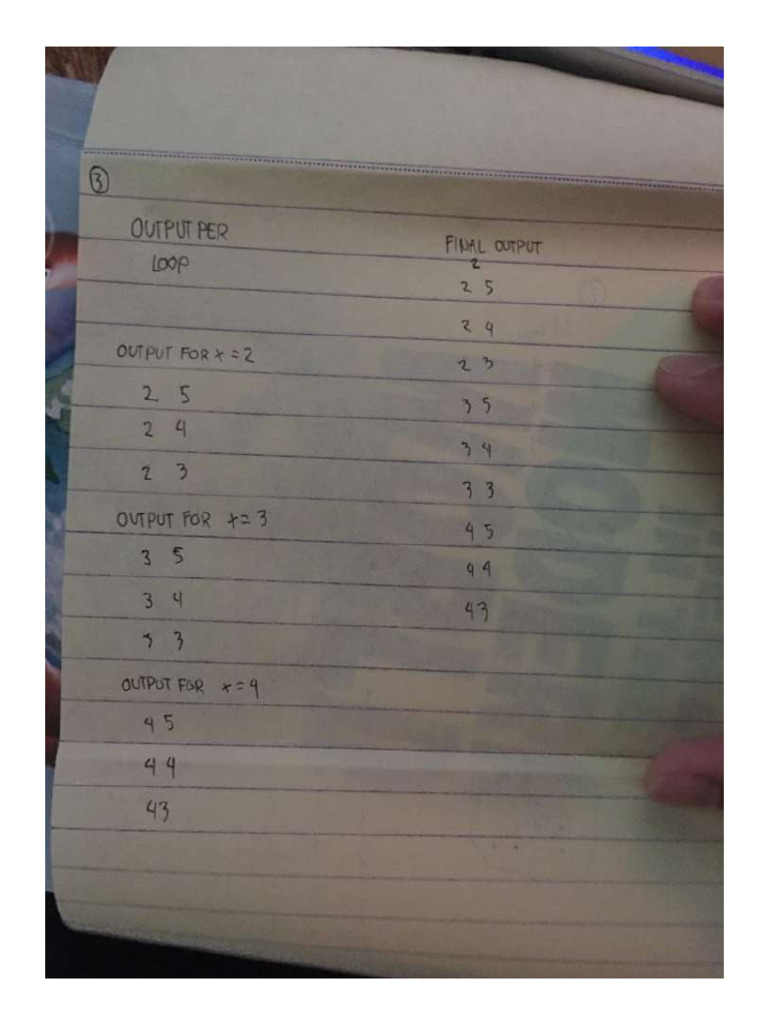 3
OUTPUT PER
LOOP
OUTPUT FOR x = 2
2 5
2 4
2 3
OUTPUT FOR x = 3
3 5
3 4
3 3
OUTPUT FOR x = 4
4 5
4 4
4 3
FINAL OUTPUT
2
2 5
2 4
2 3
3 5
3 4
3 3
4 5
4 4
4 3